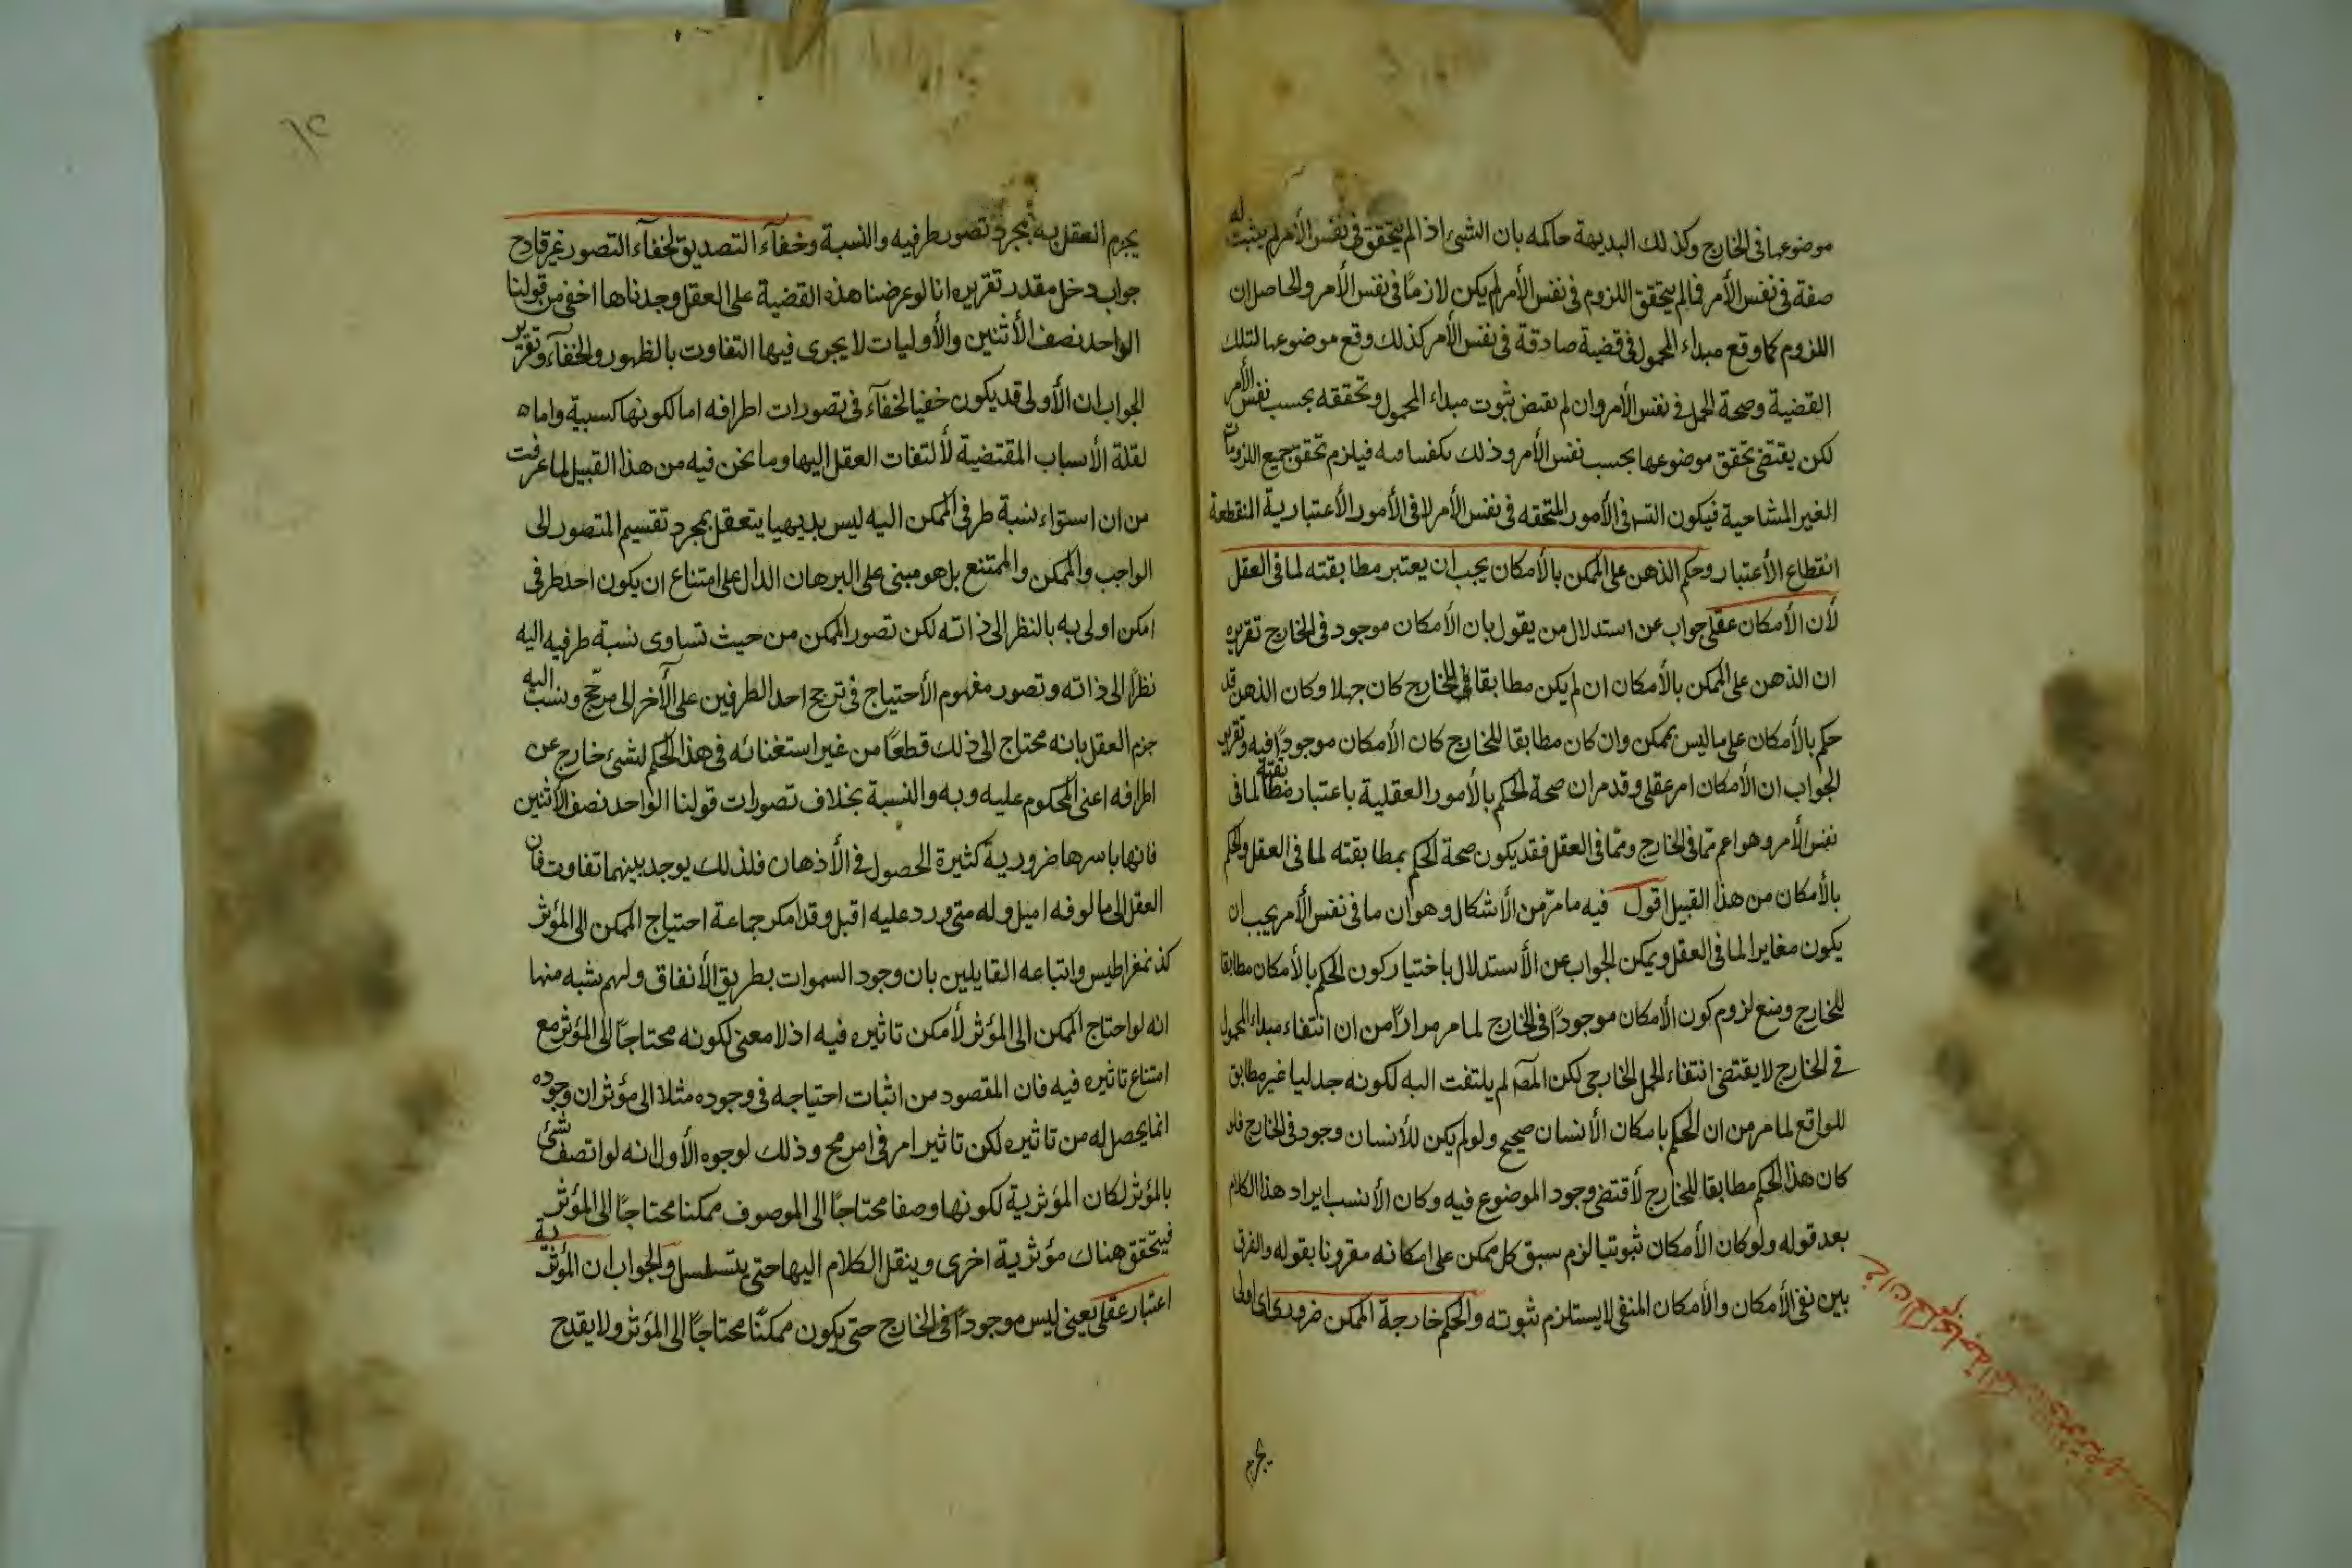 موضوعها فى الخارج وكذلك البديهة حاكمه بان الشئ اذا لم يتحقق فى نفس الأمر لم يثبت له
صفة فى نفس الأمر فما لم يتحقق اللزوم فى نفس الأمر لم يكن لازمًا فى نفس الأمر والحاصل ان
اللزوم كما وقع مبداء المحمول فى قضية صادقة فى نفس الأمر كذلك وقع موضوعها لتلك
القضية وصحة الحمل فى نفس الأمر وان لم يقتض ثبوت مبداء المحمول وتحققه بحسب نفس الأمر
لكن يقتضى تحقق موضوعها بحسب نفس الأمر وذلك فيلزم تحقق جميع اللزومات
الغير المتناهية فيكون التسـ فى الأمور المتحققه فى نفس الأمر لا فى الأمور الأعتبارية المنقطعة
انقطاع الأعتبار وحكم الذهن على الممكن بالأمكان يجب ان يعتبر مطابقته لما فى العقل
لأن الأمكان عقلى جواب عن استدلال من يقول بان الأمكان موجود فى الخارج تقريره
ان الذهن على الممكن بالأمكان ان لم يكن مطابقا للخارج كان جهلا وكان الذهن قد
حكم بالأمكان على ما ليس بممكن وان كان مطابقا للخارج كان الأمكان موجودًا فيه وتقرير
الجواب ان الأمكان امر عقلى وقد مر ان صحة الحكم بالأمور العقلية باعتبار مطابقته لما فى
نفس الأمر وهو اعم مما فى الخارج ومما فى العقل فقد يكون صحة الحكم بمطابقته لما فى العقل والحكم
بالأمكان من هذا القبيل اقول فيه ما مرّ من الأشكال وهو ان ما فى نفس الأمر يجب ان
يكون مغايرا لما فى العقل ويمكن الجواب عن الأستدلال باختيار كون الحكم بالأمكان مطابقا
للخارج ومنع لزوم كون الأمكان موجودًا فى الخارج لما مر مرارًا من ان انتفاء مبداء المحمول
فى الخارج لا يقتضى انتفاء الحمل الخارجى لكن المصـ لم يلتفت اليه لكونه جدليا غير مطابق
للواقع لما مر من ان الحكم بامكان الأنسان صحيح ولو لم يكن للأنسان وجود فى الخارج فلو
كان هذا الحكم مطابقا للخارج لأقتضى وجود الموضوع فيه وكان الأنسب ايراد هذا الكلام
بعد قوله ولو كان الأمكان ثبوتيا لزم سبق كل ممكن على امكانه مقرونا بقوله والفرق
بين نفى الأمكان والأمكان المنفى لا يستلزم ثبوته والحكم خارجة الممكن ضرورى اى اولى
يجزم
يجزم العقل به بمجرد تصور طرفيه والنسبة وخفآء التصديق لخفآء التصور غير قادح
جواب دخل مقدر تقريره انا لو عرضنا هذه القضية على العقل وجدناها اخفى من قولنا
الواحد نصف الأثنين والأوليات لا يجرى فيها التفاوت بالظهور والخفآء وتقرير
الجواب ان الأولى قد يكون خفيا لخفآء فى تصورات اطرافه اما لكونها كسبية واما
لقلة الأسباب المقتضية لألتفات العقل اليها وما نحن فيه من هذا القبيل لما عرفت
من ان استواء نسبة طرفى الممكن اليه ليس بديهيا يتعقل بمجرد تقسيم المتصور الى
الواجب والممكن والممتنع بل هو مبنى على البرهان الدال على امتناع ان يكون احد طرفى
امكن اولى به بالنظر الى ذاته لكن تصور الممكن من حيث تساوى نسبة طرفيه اليه
نظرًا الى ذاته وتصور مفهوم الأحتياج فى ترجح احد الطرفين على الأخر الى مرجّح ونسب اليه
جزم العقل بانه محتاج الى ذلك قطعًا من غير استغنائه فى هذا الحكم لشئ خارج عن
اطرافه اعنى المحكوم عليه وبه والنسبة بخلاف تصورات قولنا الواحد نصف الأثنين
فانها باسرها ضرورية كثيرة الحصول فى الأذهان فلذلك يوجد بينهما تفاوت فان
العقل الى مالوفه اميل وله متى ورد عليه اقبل وقد امكر جماعة احتياج الممكن الى المؤثر
كذنمقراطيس واتباعه القايلين بان وجود السموات بطريق الأتفاق ولهم شبه منها
انه لو احتاج الممكن الى المؤثر لأمكن تاثيره فيه اذ لا معنى لكونه محتاجًا الى المؤثر مع
امتناع تاثيره فيه فان المقصود من اثبات احتياجه فى وجوده مثلا الى مؤثر ان وجوده
انما يحصل له من تاثيره لكن تاثير امر فى امر مح وذلك لوجوه الأول انه لو اتصف شئ
بالمؤثر لكان المؤثرية لكونها وصفا محتاجًا الى الموصوف ممكنا محتاجًا الى المؤثر
فيتحقق هناك مؤثرية اخرى وينقل الكلام اليها حتى يتسلسل والجواب ان المؤثرية
اعتبار عقلى يعنى ليس موجودًا فى الخارج حتى يكون ممكنًا محتاجًا الى المؤثر ولا يقدح